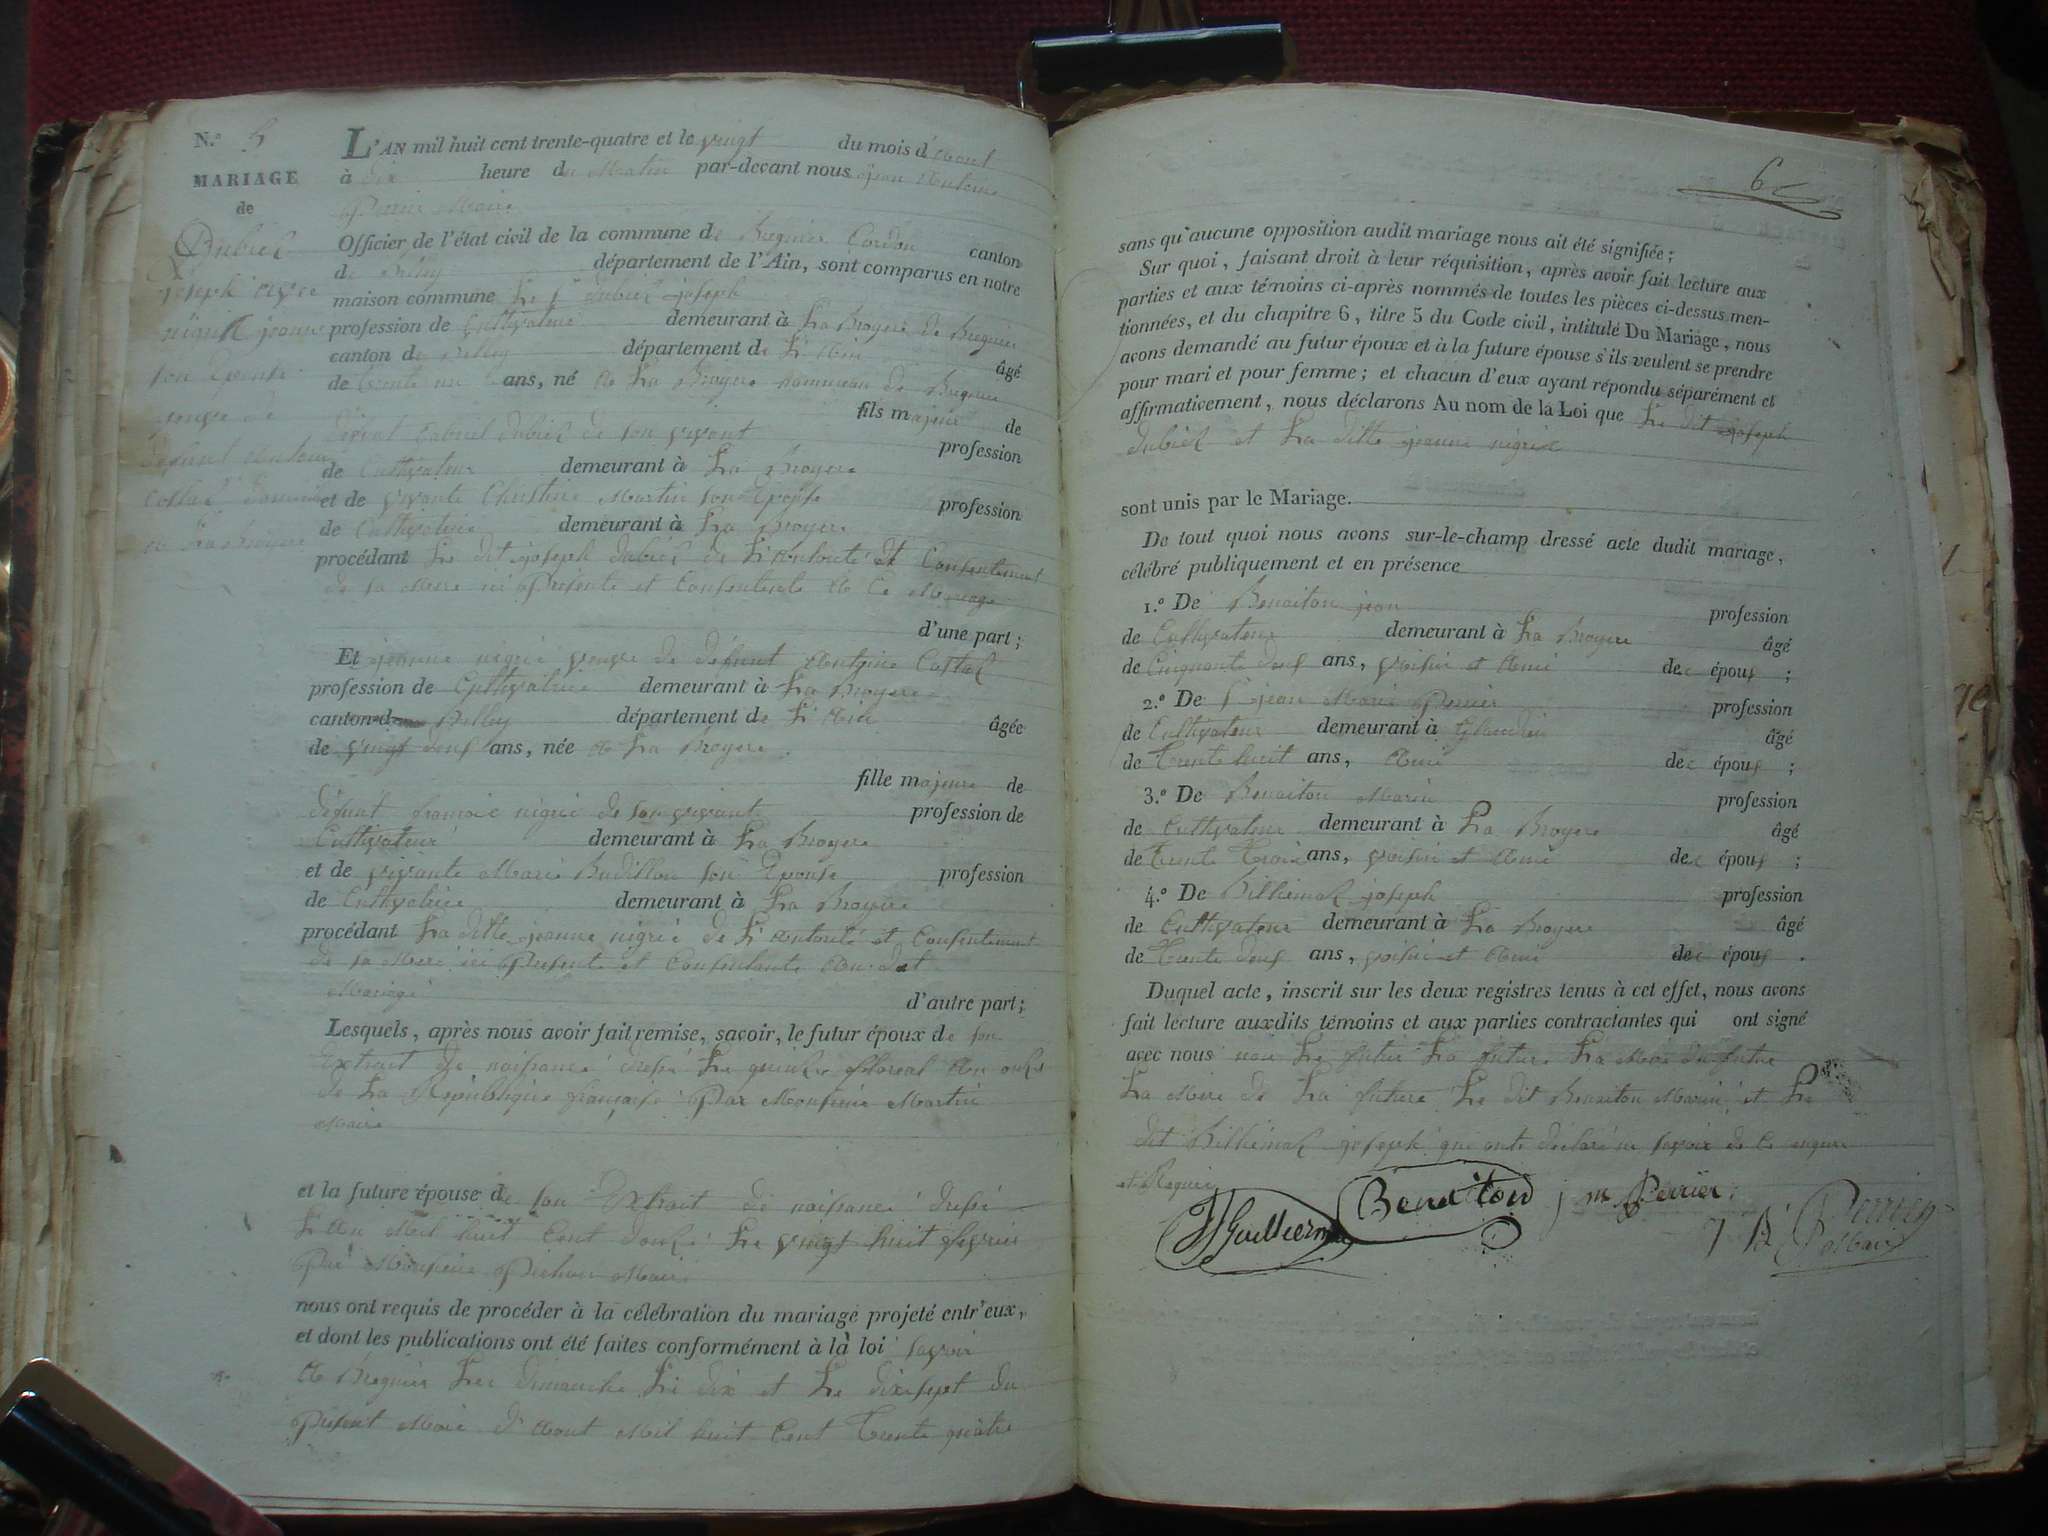 N.º 5
MARIAGE
de
Dubiez
joseph avec
nigrit jeanne
son Epouse
veuve de
defunt antoine
Costaz
La Broyere
L'AN mil huit cent trente-quatre et le vingt du mois d'Aout
à dix heure du Matin par-devant nous jean Antoine
Perrier Maire
Officier de l'état civil de la commune de Bregnier Cordon canton
de Belley département de l'Ain, sont comparus en notre
maison commune Le Sr dubiez joseph
profession de Cultivateur demeurant à La Broyere de Bregnier
canton de Belley département de L'Ain âgé
de trente un ans, né à La Broyere hammeau de Bregnier
fils majeur de
défunt Gabriel dubiez de son vivant profession
de Cultivateur demeurant à La Broyere
et de vivante Christine Martin son Epouse profession
de Cultivatrice demeurant à La Broyere
procédant Le dit joseph dubiez de L'autorité et Consentement
de sa Mere ici Presente et Consentente à Ce Mariage
d'une part;
Et jeanne nigrit veuve de défunt Antoine Costaz
profession de Cultivatrice demeurant à La Broyere
canton de Belley département de L'Ain âgée
de vingt deux ans, née à La Broyere
fille majeure de
défunt francois nigrit de son vivant profession de
Cultivateur demeurant à La Broyere
et de vivante Marie Budillon son Epouse profession
de Cultivatrice demeurant à La Broyere
procédant La ditte jeanne nigrit de L'autorité et Consentement
de sa Mere ici Presente et Consentante Au dit
Mariage d'autre part;
Lesquels, après nous avoir fait remise, savoir, le futur époux de son
Extrait de naissance dressé Le quinze floreal An onze
de La République française Par Monsieur Martin
Maire
et la future épouse de son Extrait de naissance dressé
L'An Mil huit Cent douze Le vingt huit fevrier
Par Monsieur Maire
nous ont requis de procéder à la célébration du mariage projeté entr'eux,
et dont les publications ont été faites conformément à là loi savoir
A Bregnier Les dimanche Le dix et Le dixsept du
Present Mois d'Aout Mil huit Cent Trente quatre
6
sans qu'aucune opposition audit mariage nous ait été signifiée;
Sur quoi, faisant droit à leur réquisition, après avoir fait lecture aux
parties et aux témoins ci-après nommés de toutes les pièces ci-dessus men-
tionnées, et du chapitre 6, titre 5 du Code civil, intitulé Du Mariage, nous
avons demandé au futur époux et à la future épouse s'ils veulent se prendre
pour mari et pour femme; et chacun d'eux ayant répondu séparément et
affirmativement, nous déclarons Au nom de la Loi que Le dit joseph
dubiez et La ditte jeanne nigrit
sont unis par le Mariage.
De tout quoi nous avons sur-le-champ dressé acte dudit mariage,
célébré publiquement et en présence
1.º De Benoiton jean profession
de Cultivateur demeurant à La Broyere âgé
de Cinquante deux ans, voisin et Ami des époux;
2.º De Sr jean Marie Perrier profession
de Cultivateur demeurant à Glandieu âgé
de Trente huit ans, Ami des époux;
3.º De Benoiton Marin profession
de Cultivateur demeurant à La Broyere âgé
de Trente Trois ans, voisin et Ami des époux;
4.º De Billiemaz joseph profession
de Cultivateur demeurant à La Broyere âgé
de Trente deux ans, voisin et Ami des époux.
Duquel acte, inscrit sur les deux registres tenus à cet effet, nous avons
fait lecture auxdits témoins et aux parties contractantes qui ont signé
avec nous non Le futur La future La Mere du futur
La Mere de La future Le dit Benoiton Marin et Le
dit Billiemaz joseph qui ont déclaré ne savoir de Ce enquis
et Requis
Guillerme Benoiton j m Perrier
Perrier
Maire